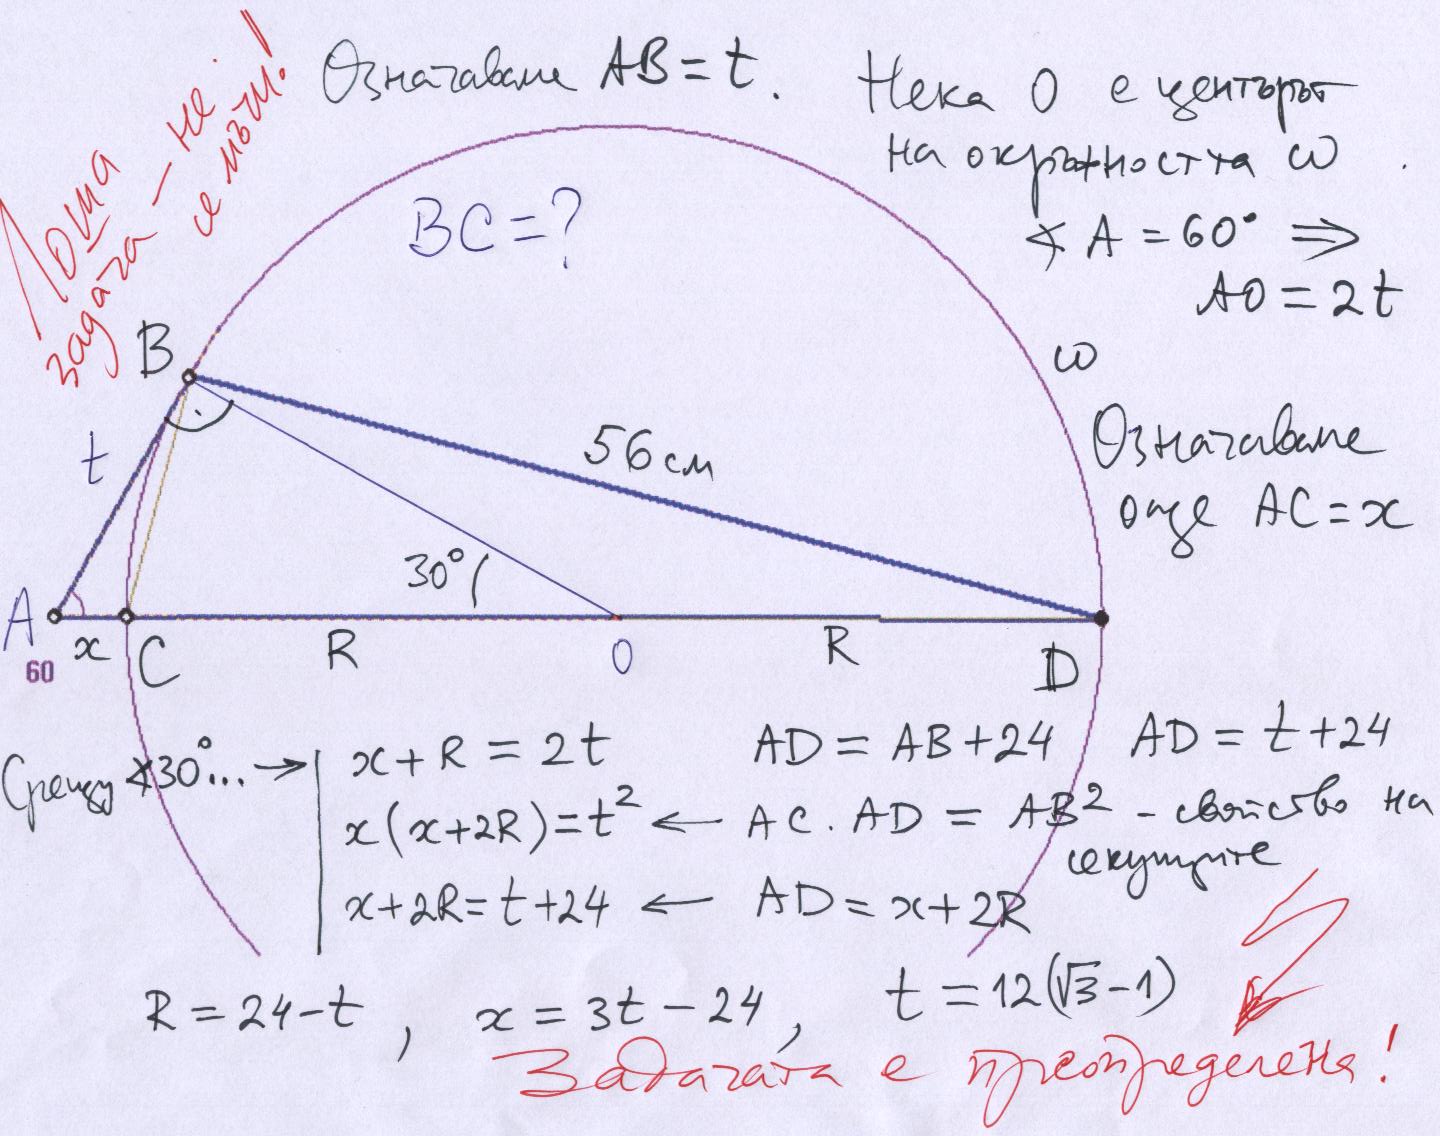 Лоша
задача – не
се мъчи!
Означаваме AB = t.
Нека O е центърът
на окръжността ω.
∢ A = 60° ⇒
AO = 2t
BC = ?
ω
B
t
56 см
Означаваме
още AC = x
30°
A
60
x
C
R
O
R
D
Срещу ∢30°... →
x + R = 2t
AD = AB + 24
AD = t + 24
x(x+2R) = t² ← AC . AD = AB² – свойство на
секущите
x + 2R = t + 24 ← AD = x + 2R
R = 24 - t , x = 3t - 24 , t = 12(√3 - 1)
Задачата е преопределена!